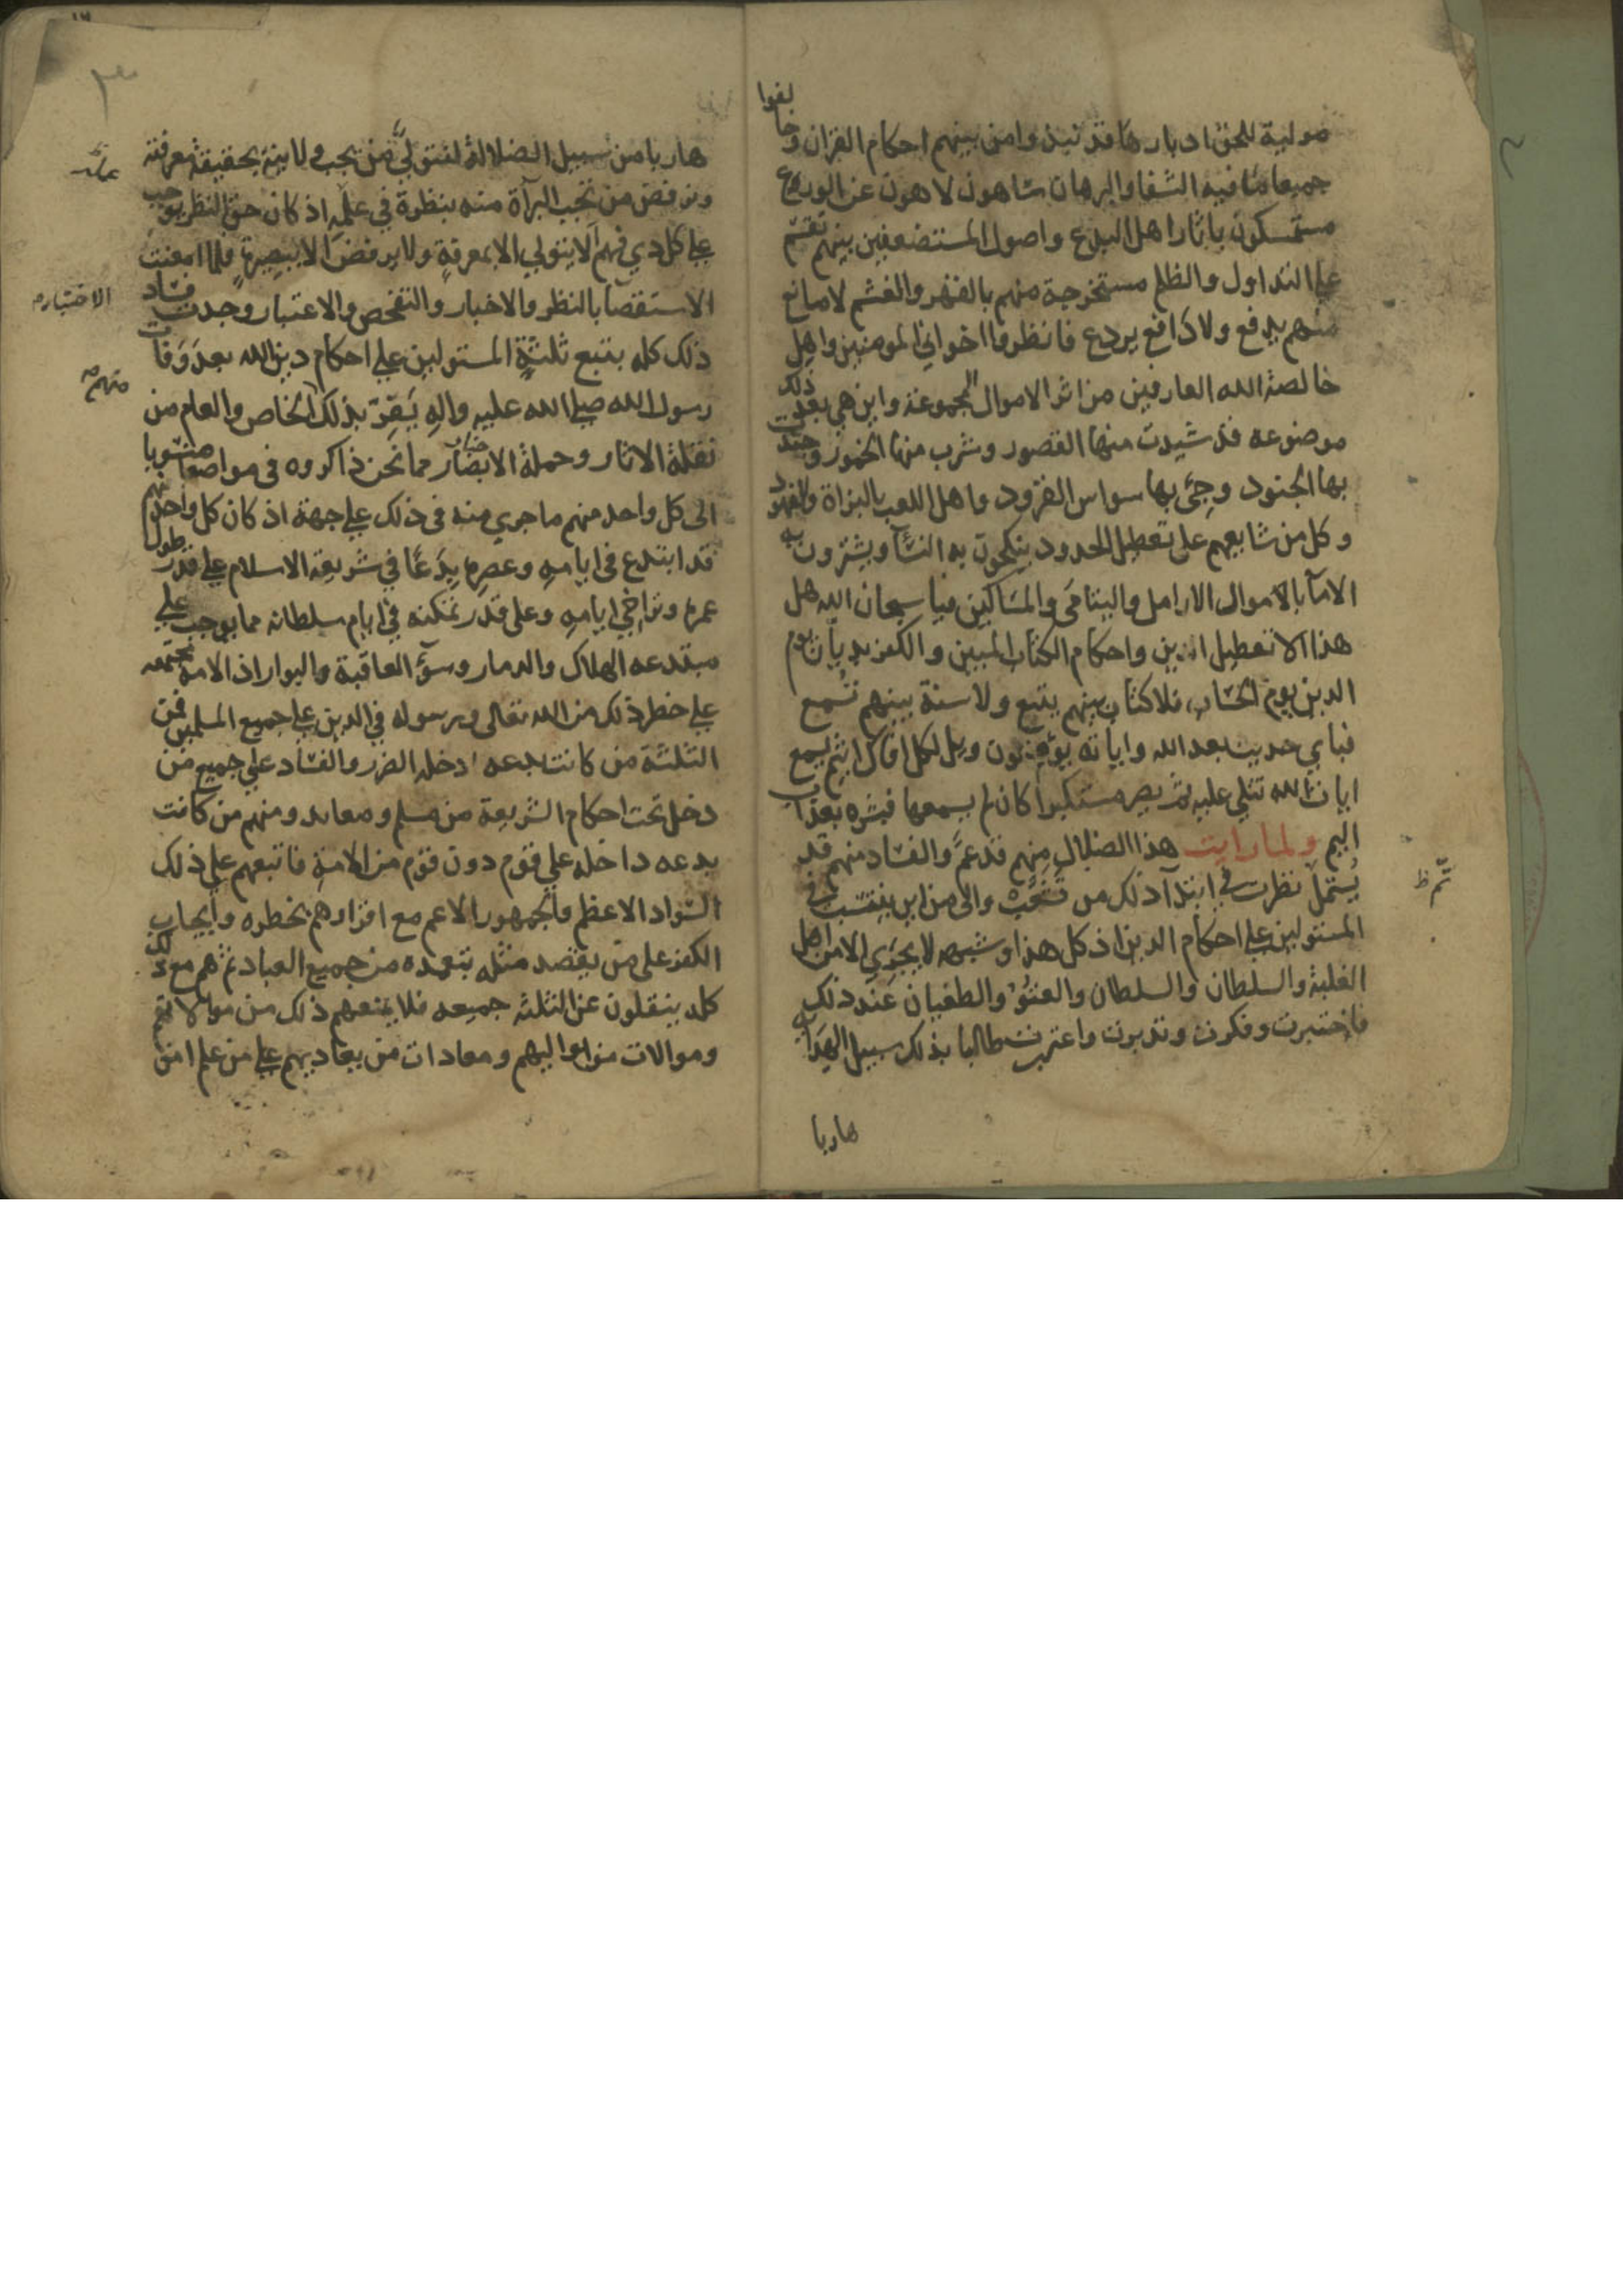 مولية للحق ادبارها قد نبذوا من بينهم احكام القران وخالفوا
جميعا ما فيه الشفا والبرهان ساهون لاهون عن الورع
متمسكون باثار اهل البدع واصول المستضعفين بينهم تقسم
علي التداول والظلم مستخرجة منهم بالقهر والغشم لا مانع
منهم يدفع ولا دافع يردع فانظروا اخواني المومنين واهل
خالصة الله العارفين من اثر الاموال المجموعة واين هي بعد ذلك
موضوعه قد شيدت منها القصور وشرب منها الخمور وجندت
بها الجنود وجئ بها سواس القرود واهل اللعب بالبزاة والفهود
وكل من شايعهم على تعطيل الحدود ينكحون به النسآ ويشترون به
الامآ بالاموال الارامل واليتامى والمساكين فيا سبحان الله هل
هذا الا تعطيل الدين واحكام الكتاب المبين والكفر بديان يوم
الدين يوم الحساب فلا كتاب بينهم يتبع ولا سنة بينهم تسمع
فباي حديث بعد الله واياته يؤمنون ويل لكل افاك اثيم يسمع
ايات الله تتلي عليه ثم يصر مستكبرا كان لم يسمعها فبشره بعذاب
اليم ولما رايت هذا الضلال منهم قد عم والفساد منهم قد
يشمل نظرت في ابتدآ ذلك من والى من اين ينتسب في
تم ظ
المستولين علي احكام الدين اذ كل هذا وشبهه لا يجزي الا من اهل
الغلبة والسلطان والسلطان والعتو والطغيان عند ذلك
فاختبرت وفكرت وتدبرت واعتبرت طالبا بذلك سبيل الهداية
هاربا
هاربا من سبيل الضلالة لنتولي من يجب ولايته بحقيقة معرفته
ونرفض من تجب البرآة منه بنظرة في علمه اذ كان حق النظر يوجب
علي كل ذي فهم الا يتولي الا بمعرفة ولا يرفض الا ببصيرة فلما امعنت
الاستقصا بالنظر والاخبار والتفحص والاعتبار وجدت فساد
الاختبار م
ذلك كله بتبع ثلثة المستولين علي احكام دين الله بعد وفات
منهم م
رسول الله صلي الله عليه واله يقر بذلك الخاص والعام من
نقلة الاثار وحملة الاخبار مما نحن ذاكروه في مواضعه منسوبا
الى كل واحد منهم ما جري منه في ذلك علي جهة اذ كان كل واحد منهم
قد ابتدع في ايامه وعصره بدعا في شريعة الاسلام علي قدر طول
عمره وتراخي ايامه وعلى قدر تمكنه في ايام سلطانه مما يوجب علي
مبتدعه الهلاك والدمار وسوء العاقبة والبوار اذ الامة مجتمعه
علي حظر ذلك من الله تعالى ورسوله في الدين علي جميع المسلمين فمن
الثلثة من كانت بدعه ادخله الضرر والفساد علي جميع من
دخل تحت احكام الشريعة من مسلم ومعاهد ومنهم من كانت
بدعه داخله علي قوم دون قوم من الامة فاتبعهم علي ذلك
السواد الاعظم والجمهور الاعم مع اقرارهم بخطره وايجاب
الكفر على من يقصد مثله بتعمده من جميع العباد ثم هم مع ذلك
كله ينقلون عن الثلثه جميعه فلا يمنعهم ذلك من موالاتهم
وموالات من يواليهم ومعادات من يعاديهم علي من علم امن